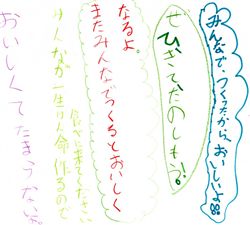 みんなで、つくったから、おいしいよ!!
ぜひきてたのしもう!
なるよ。
またみんなでつくるとおいしく
食べに来てください
みんなが一生けん命作るので
おいしくてたまらないよ。